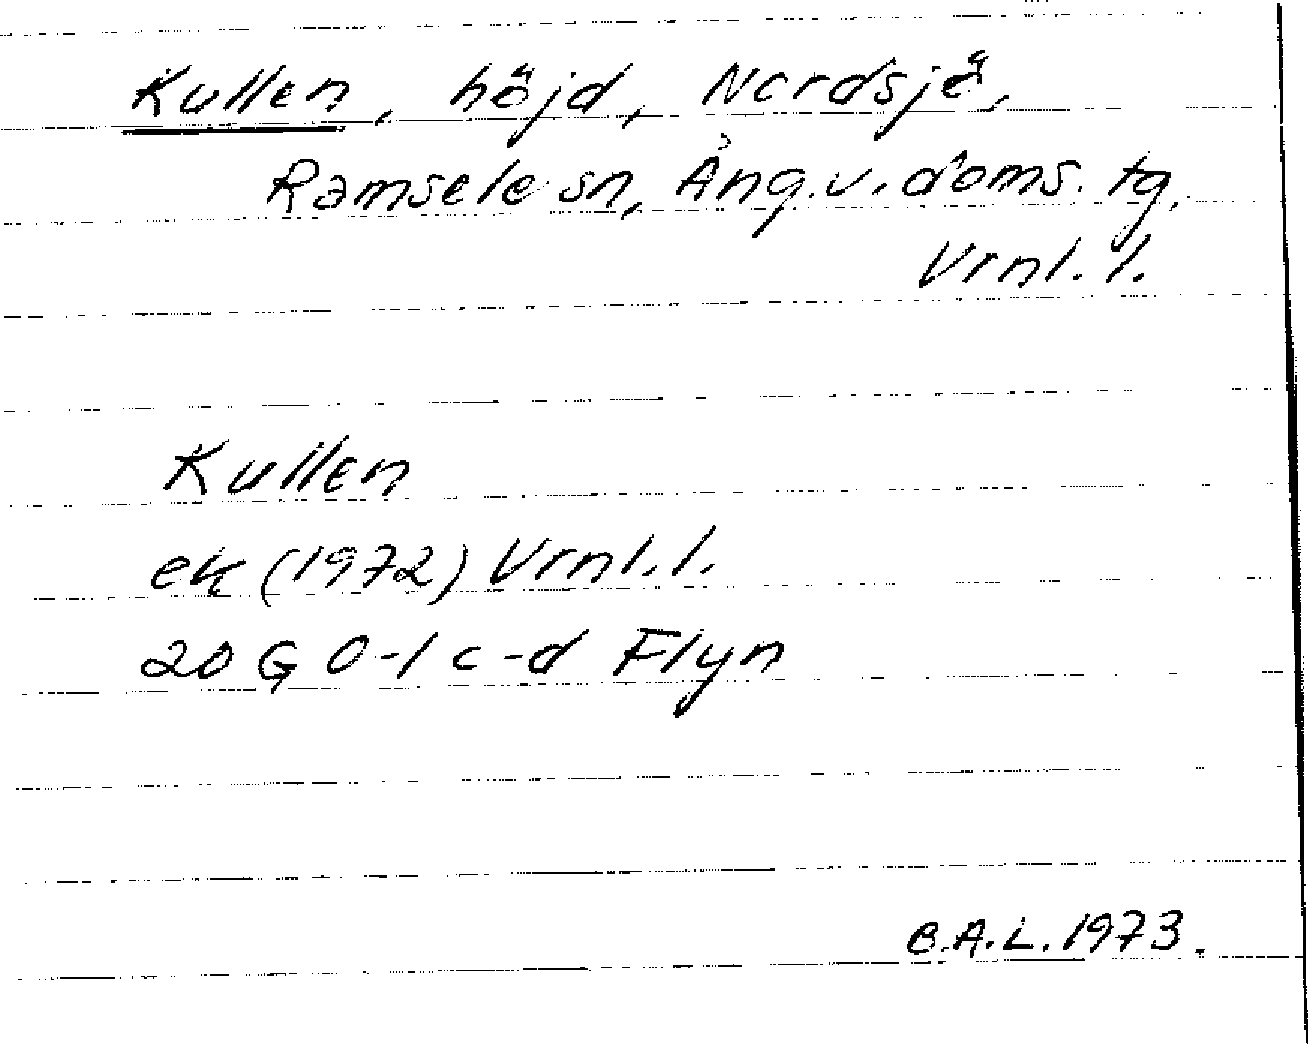 Kullen, höjd, Nordsjö,
Ramsele sn, Ång.v. doms. tg,
Vrnl. l.
Kullen
ek (1972) Vrnl. l.
20 G 0-1 c-d Flyn
B.A.L. 1973.